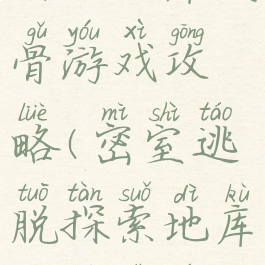 gǔ yóu xì gōng
骨游戏攻
lüè mì shì táo
略(密室逃
tuō tàn suǒ dì kù
脱探索地库